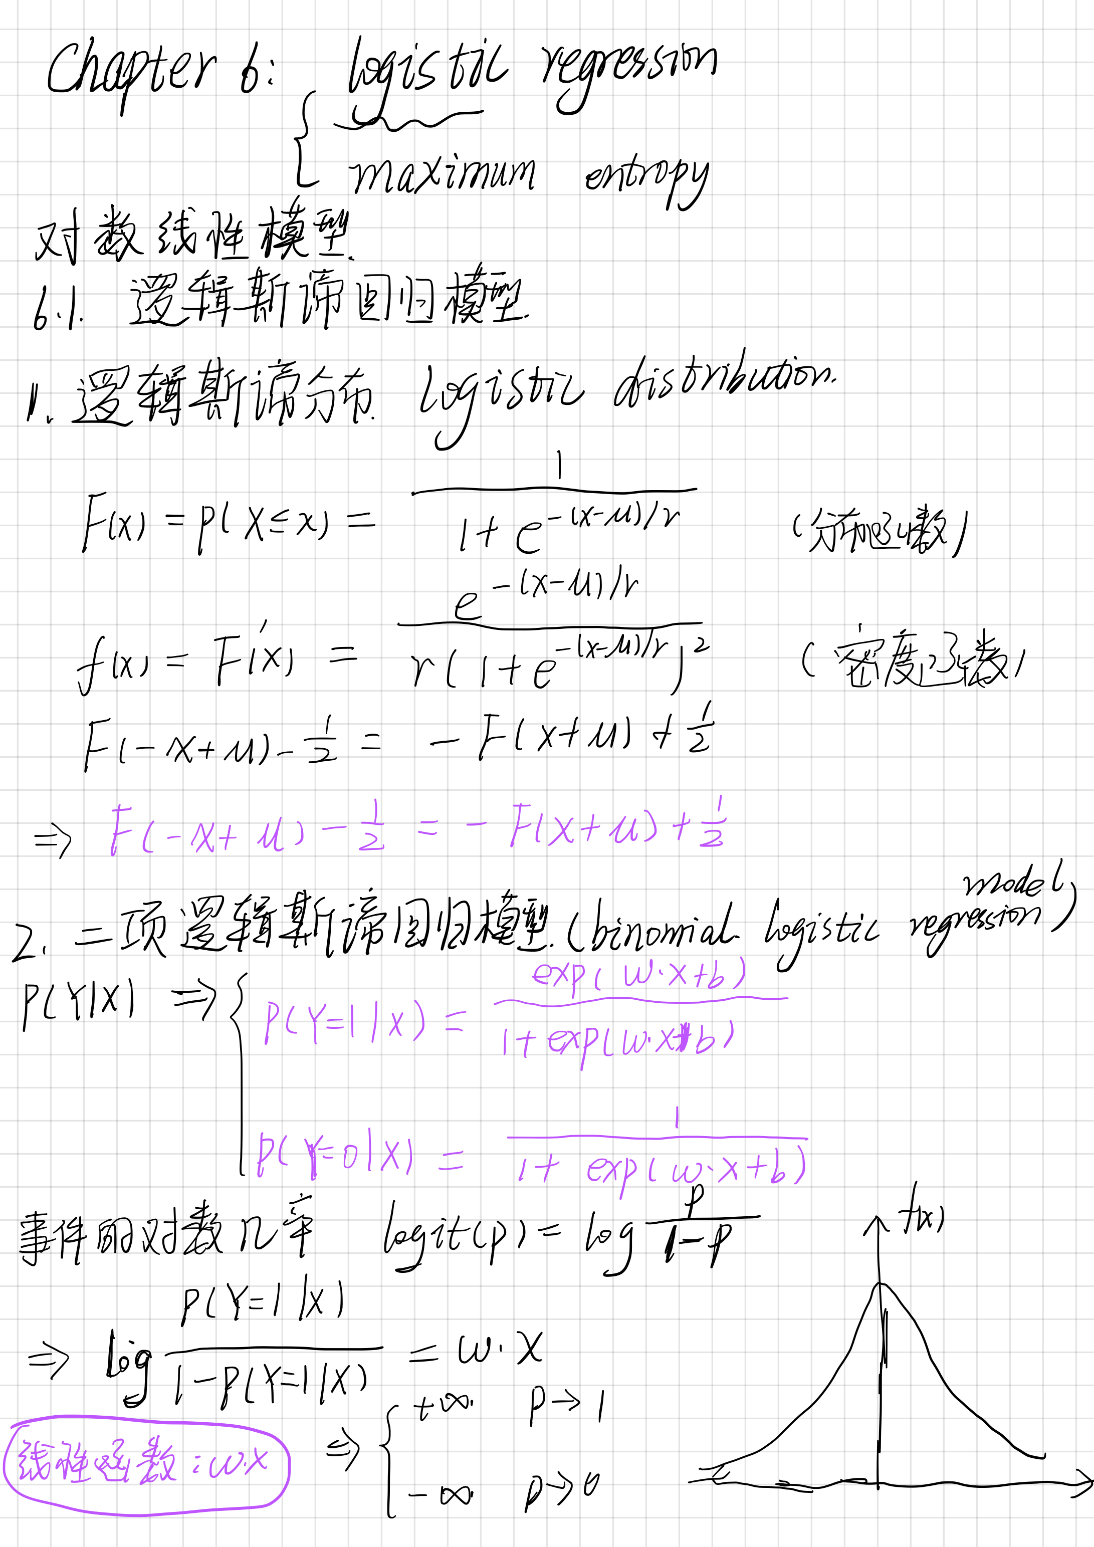 Chapter 6: logistic regression
maximum entropy
对数线性模型.
6.1. 逻辑斯谛回归模型.
1. 逻辑斯谛分布. Logistic distribution.
F(x) = P(X≤x) = 1 / (1 + e^{-(x-μ)/r}) (分布函数)
f(x) = F'(x) = e^{-(x-μ)/r} / r(1+e^{-(x-μ)/r})² (密度函数)
F(-x+μ) - 1/2 = -F(x+μ) + 1/2
⇒ F(-x+μ) - 1/2 = -F(x+μ) + 1/2
2. 二项逻辑斯谛回归模型. (binomial logistic regression model)
P(Y|X) ⇒ { P(Y=1|x) = exp(w·x+b) / (1+exp(w·x+b))
P(Y=0|x) = 1 / (1+ exp(w·x+b))
事件的对数几率 logit(p) = log p/(1-p)
f(x)
⇒ log P(Y=1|x) / (1-P(Y=1|x)) = w·x
⇒ { +∞. p→1
-∞ p→0
线性函数:w·x